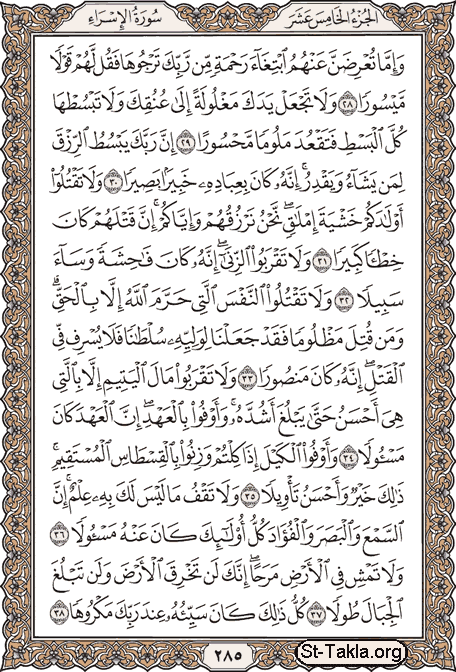 الجزء الخامس عشر
سورة الإسراء
وَإِمَّا تُعْرِضَنَّ عَنْهُمُ ٱبْتِغَآءَ رَحْمَةٍ مِّن رَّبِّكَ تَرْجُوهَا فَقُل لَّهُمْ قَوْلًا
مَّيْسُورًا ٢٨ وَلَا تَجْعَلْ يَدَكَ مَغْلُولَةً إِلَىٰ عُنُقِكَ وَلَا تَبْسُطْهَا
كُلَّ ٱلْبَسْطِ فَتَقْعُدَ مَلُومًا مَّحْسُورًا ٢٩ إِنَّ رَبَّكَ يَبْسُطُ ٱلرِّزْقَ
لِمَن يَشَآءُ وَيَقْدِرُ ۚ إِنَّهُۥ كَانَ بِعِبَادِهِۦ خَبِيرًۢا بَصِيرًا ٣٠ وَلَا تَقْتُلُوٓا۟
أَوْلَٰدَكُمْ خَشْيَةَ إِمْلَٰقٍ ۖ نَّحْنُ نَرْزُقُهُمْ وَإِيَّاكُمْ ۚ إِنَّ قَتْلَهُمْ كَانَ
خِطْـًٔا كَبِيرًا ٣١ وَلَا تَقْرَبُوا۟ ٱلزِّنَىٰٓ ۖ إِنَّهُۥ كَانَ فَٰحِشَةً وَسَآءَ
سَبِيلًا ٣٢ وَلَا تَقْتُلُوا۟ ٱلنَّفْسَ ٱلَّتِى حَرَّمَ ٱللَّهُ إِلَّا بِٱلْحَقِّ ۗ
وَمَن قُتِلَ مَظْلُومًا فَقَدْ جَعَلْنَا لِوَلِيِّهِۦ سُلْطَٰنًا فَلَا يُسْرِف فِّى
ٱلْقَتْلِ ۖ إِنَّهُۥ كَانَ مَنصُورًا ٣٣ وَلَا تَقْرَبُوا۟ مَالَ ٱلْيَتِيمِ إِلَّا بِٱلَّتِى
هِىَ أَحْسَنُ حَتَّىٰ يَبْلُغَ أَشُدَّهُۥ ۚ وَأَوْفُوا۟ بِٱلْعَهْدِ ۖ إِنَّ ٱلْعَهْدَ كَانَ
مَسْـُٔولًا ٣٤ وَأَوْفُوا۟ ٱلْكَيْلَ إِذَا كِلْتُمْ وَزِنُوا۟ بِٱلْقِسْطَاسِ ٱلْمُسْتَقِيمِ ۚ
ذَٰلِكَ خَيْرٌ وَأَحْسَنُ تَأْوِيلًا ٣٥ وَلَا تَقْفُ مَا لَيْسَ لَكَ بِهِۦ عِلْمٌ ۚ إِنَّ
ٱلسَّمْعَ وَٱلْبَصَرَ وَٱلْفُؤَادَ كُلُّ أُو۟لَٰٓئِكَ كَانَ عَنْهُ مَسْـُٔولًا ٣٦
وَلَا تَمْشِ فِى ٱلْأَرْضِ مَرَحًا ۖ إِنَّكَ لَن تَخْرِقَ ٱلْأَرْضَ وَلَن تَبْلُغَ
ٱلْجِبَالَ طُولًا ٣٧ كُلُّ ذَٰلِكَ كَانَ سَيِّئُهُۥ عِندَ رَبِّكَ مَكْرُوهًا ٣٨
٢٨٥
St-Takla.org